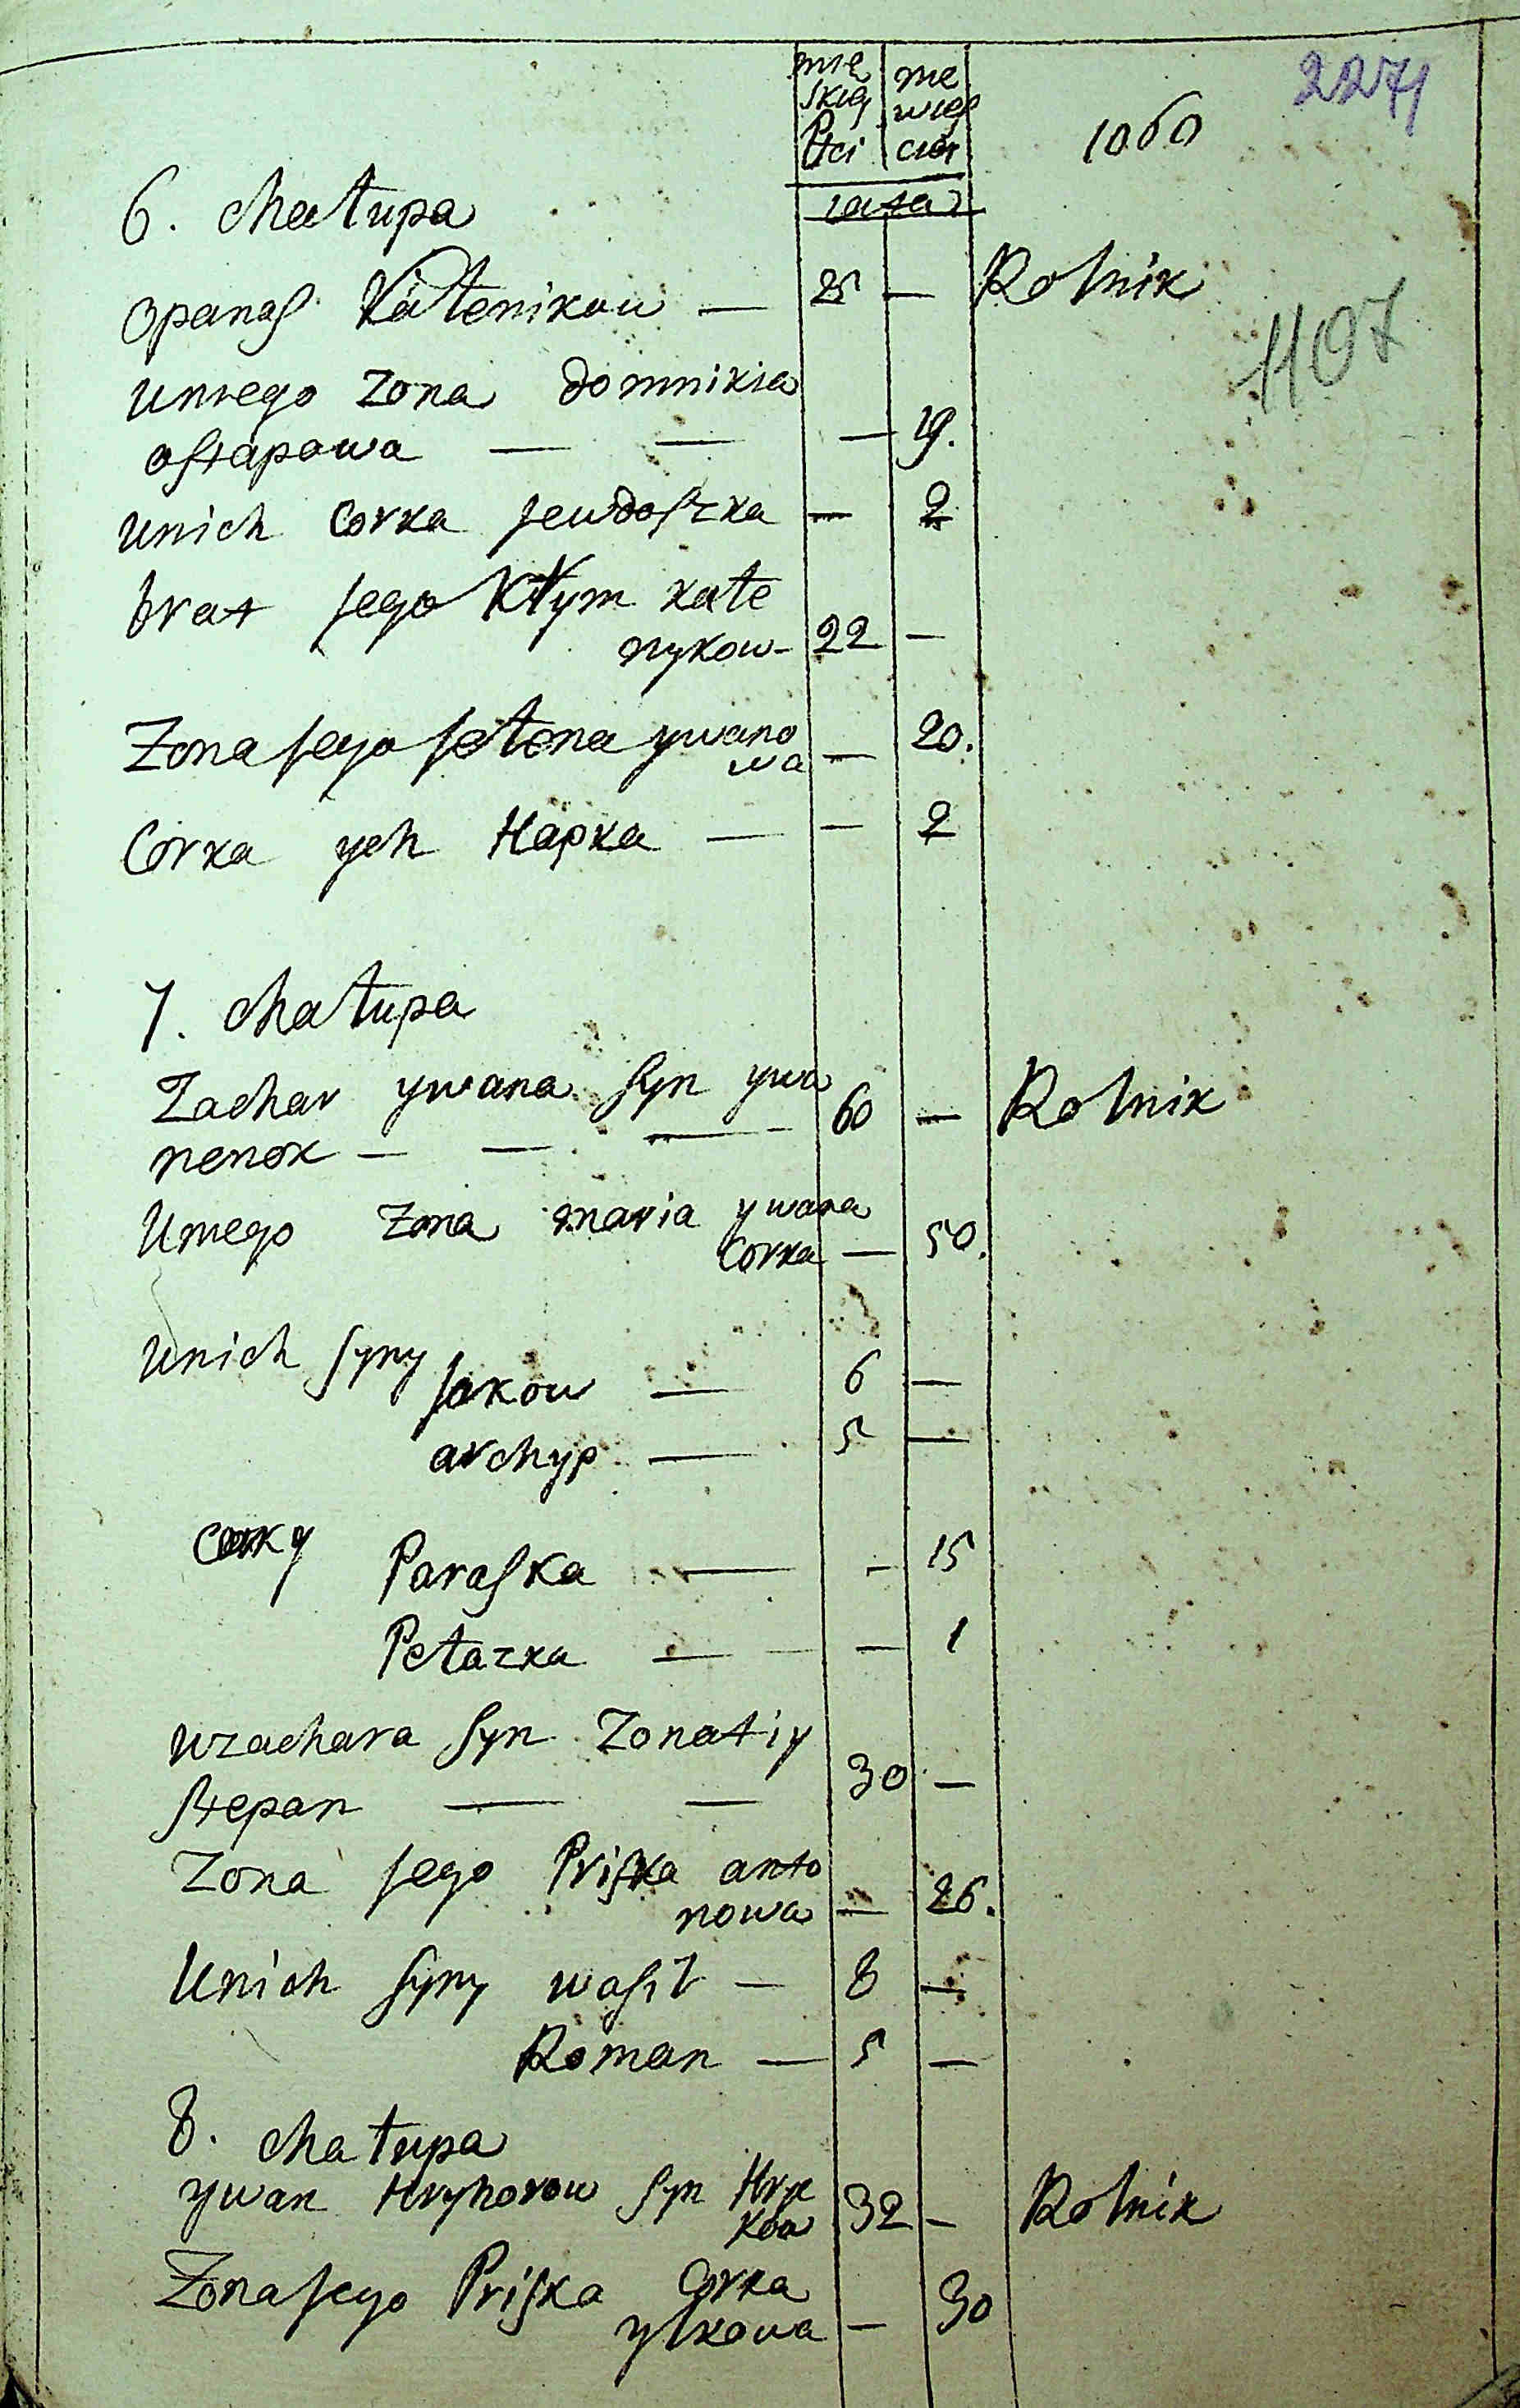 mę nie
skiej wieś
Płci ciej
2271
1060
lata
6. chałupa
Opanas Katenikow — 25 — Rolnik
1107
Uniego Zona domnikia
ostapowa — — — 19.
Unich Corka jewdoszka — 2
brat jego Kłym kate
nykow - 22 —
Zona jego jełena ywano
wa — 20.
Corka yeh Hapka — — 2
7. chałupa
Zachar ywana syn ywa
nenok — — — 60 — Rolnik
Uniego Zona maria ywana
Corka — 50.
Unich syny
jakow — 6 —
archyp — 5 —
Corky
Paraska — - 15
Petazka — — 1
Uzachara syn Zonatiy
stepan — — 30 —
Zona jego Priska anto
nowa — 26.
Unich syny wasil — 8 —
Roman — 5 —
8. chałupa
ywan Hryhorow syn Hry
kow 32 — Rolnik
Zona jego Priska Corka
ylkowa — 30